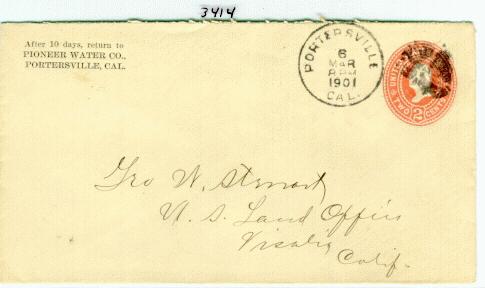 3414
After 10 days, return to
PIONEER WATER CO.,
PORTERSVILLE, CAL.
PORTERSVILLE
6
MAR
1901
CAL.
UNITED
TWO 2 CENTS
Geo W. Stewart
U. S. Land Office
Visalia
Calif.